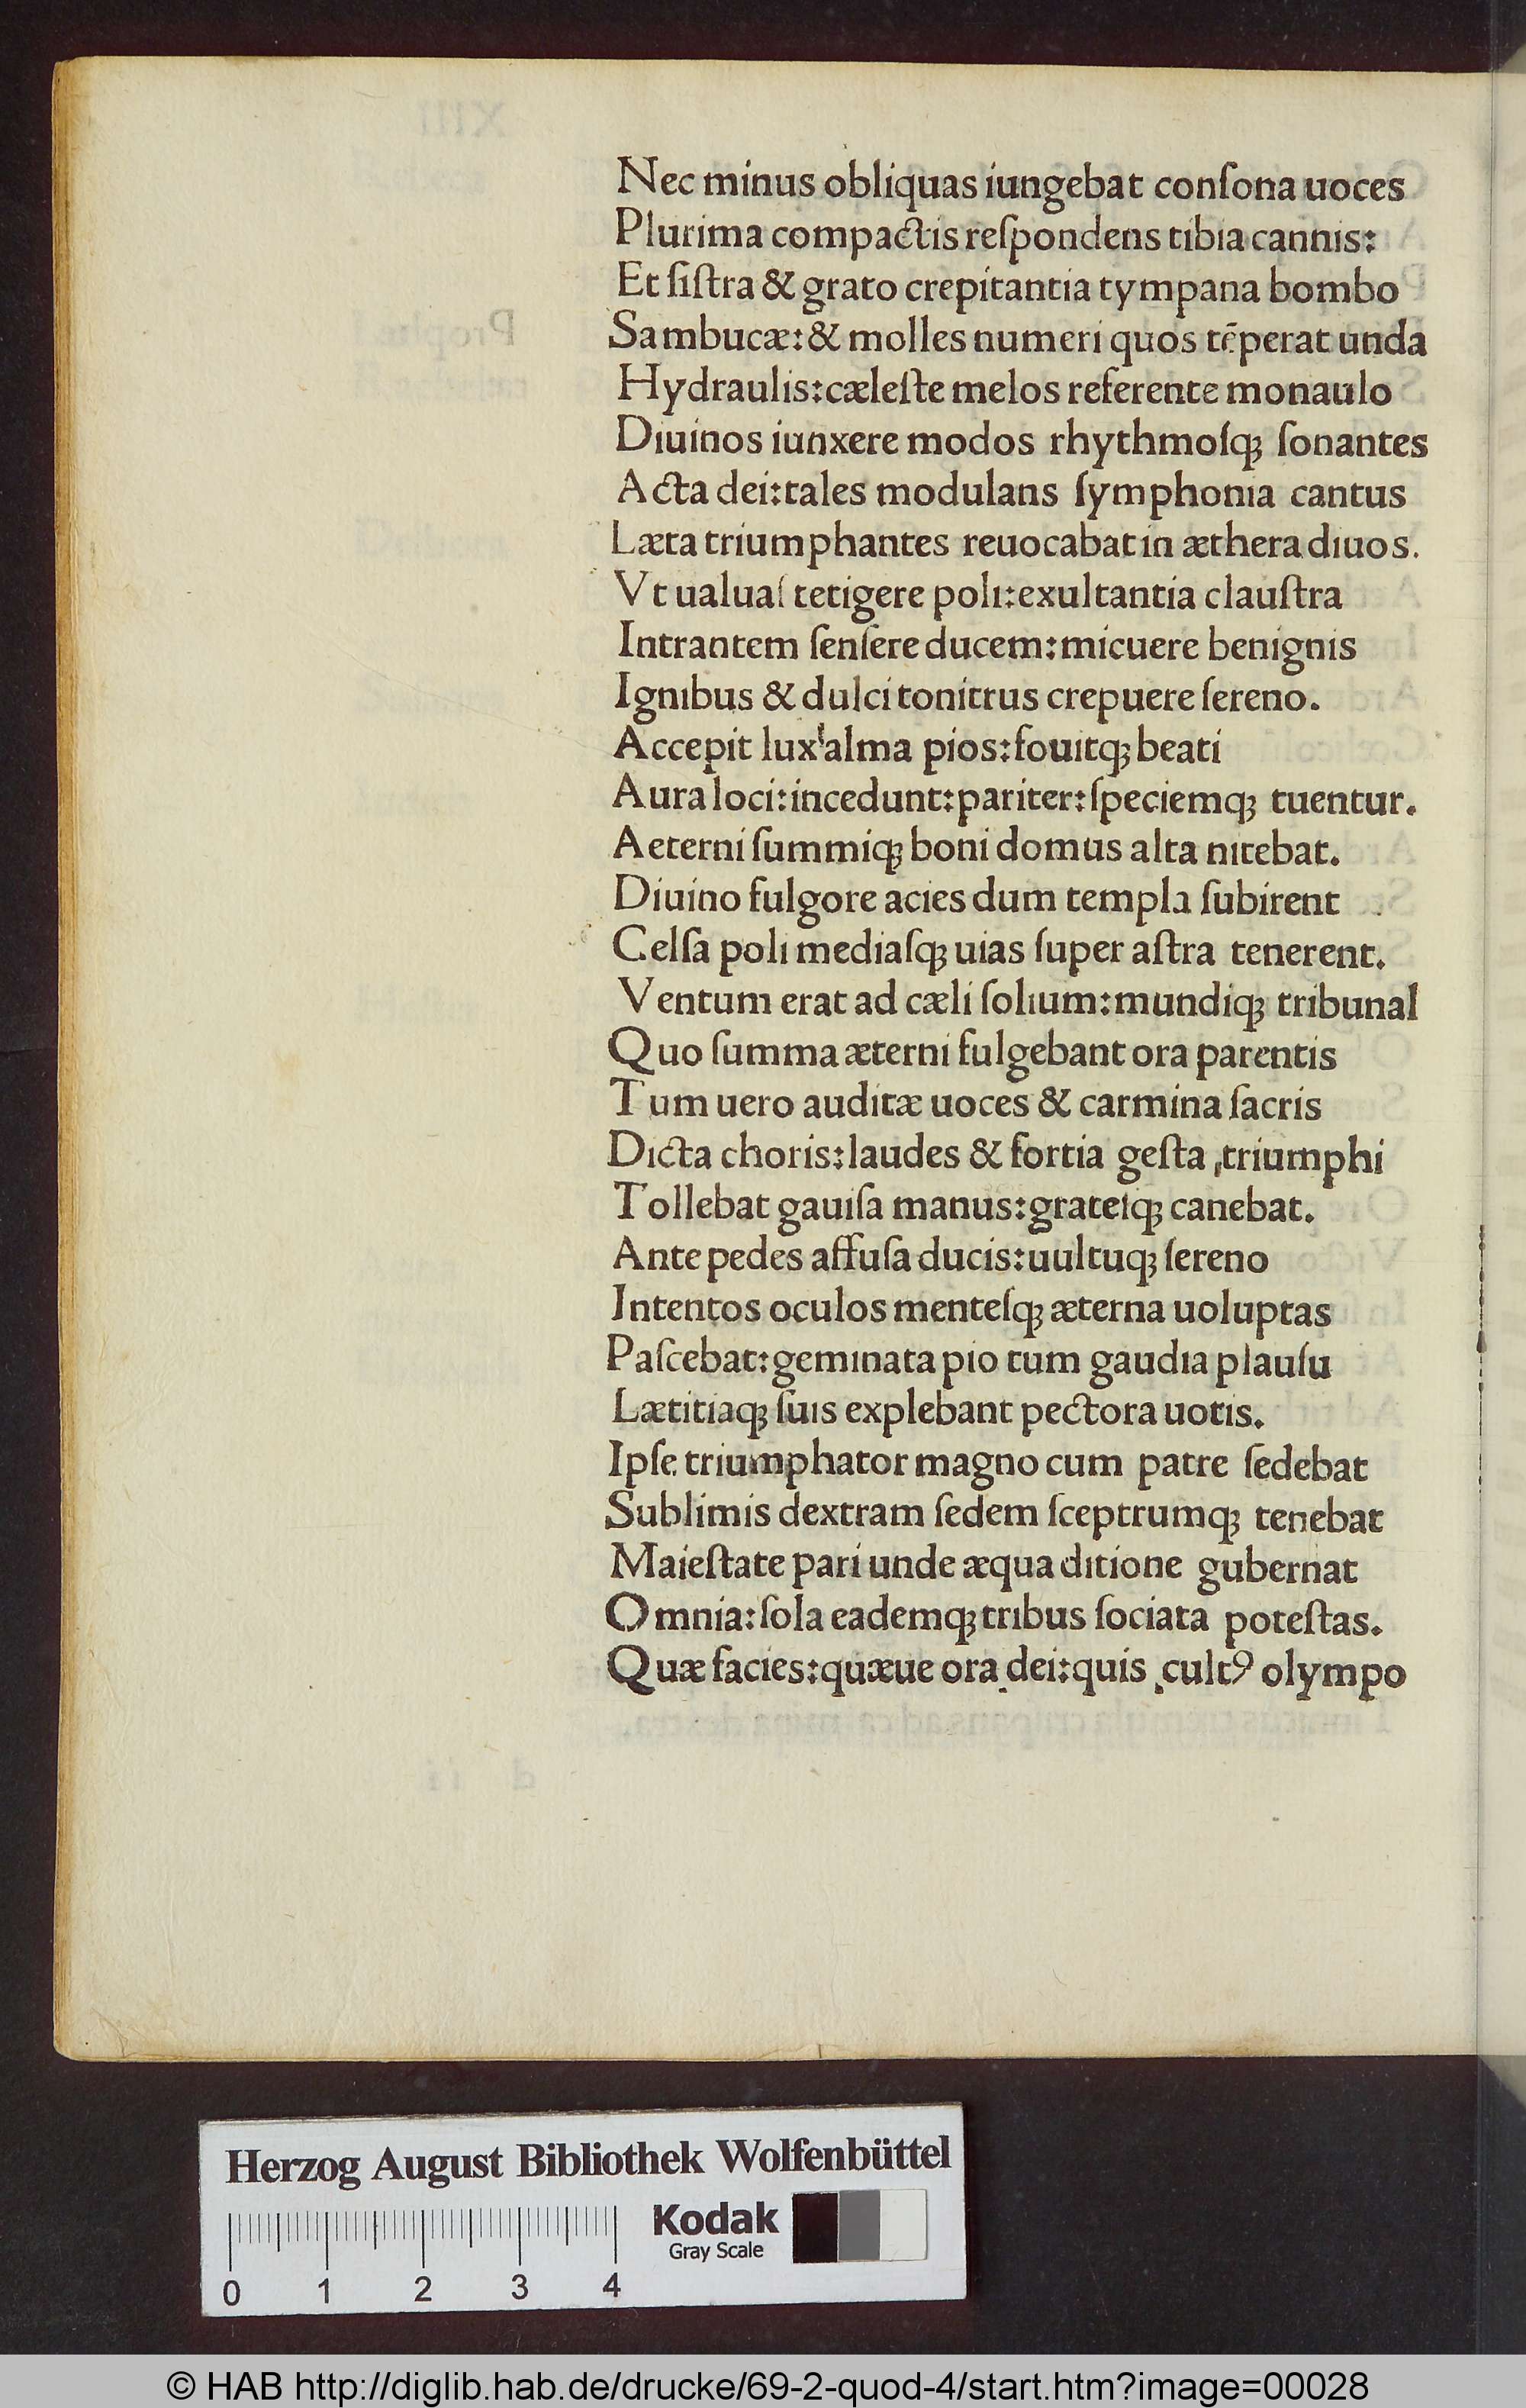 Nec minus obliquas iungebat conſona uoces
Plurima compactis reſpondens tibia cannis:
Et ſiſtra & grato crepitantia tympana bombo
Sambucæ: & molles numeri quos tēperat unda
Hydraulis: cæleſte melos referente monaulo
Diuinos iunxere modos rhythmoſq; ſonantes
Acta dei: tales modulans ſymphonia cantus
Læta triumphantes reuocabat in æthera diuos.
Vt ualuaſ tetigere poli: exultantia clauſtra
Intrantem ſenſere ducem: micuere benignis
Ignibus & dulci tonitrus crepuere ſereno.
Accepit lux alma pios: fouitq; beati
Aura loci: incedunt: pariter: ſpeciemq; tuentur.
Aeterni ſummiq; boni domus alta nitebat.
Diuino fulgore acies dum templa ſubirent
Celſa poli mediaſq; uias ſuper aſtra tenerent.
Ventum erat ad cæli ſolium: mundiq; tribunal
Quo ſumma æterni fulgebant ora parentis
Tum uero auditæ uoces & carmina ſacris
Dicta choris: laudes & fortia geſta triumphi
Tollebat gauiſa manus: grateſq; canebat.
Ante pedes affuſa ducis: uultuq; ſereno
Intentos oculos menteſq; æterna uoluptas
Paſcebat: geminata pio tum gaudia plauſu
Lætitiaq; ſuis explebant pectora uotis.
Ipſe triumphator magno cum patre ſedebat
Sublimis dextram ſedem ſceptrumq; tenebat
Maieſtate pari unde æqua ditione gubernat
Omnia: ſola eademq; tribus ſociata poteſtas.
Quæ facies: quæue ora dei: quis cultꝰ olympo
Herzog August Bibliothek Wolfenbüttel
Kodak
Gray Scale
0 1 2 3 4
© HAB http://diglib.hab.de/drucke/69-2-quod-4/start.htm?image=00028